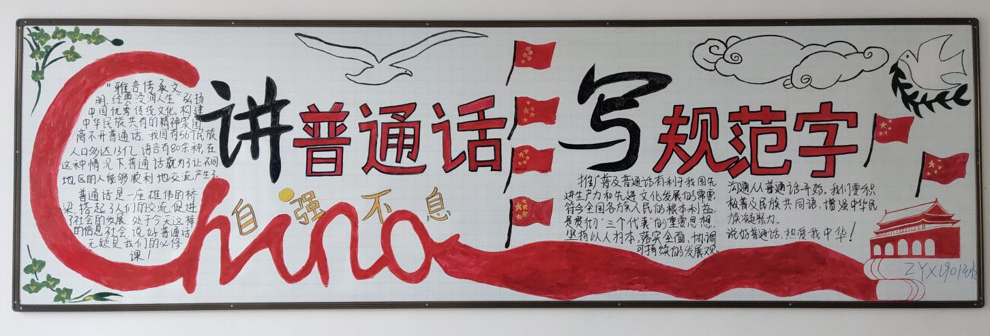 讲普通话
写规范字
China
自强不息
"雅言传承文
明,经典浸润人生"弘扬
中国优秀传统文化,构建
中华民族共有的精神家园
离不开普通话。我国有56个民族
人口多达13亿,语言有80余种,在
这种情况下普通话就为了让不同
地区的人能够顺利地交流产生了
普通话是一座雄伟的桥
梁,搭起了人们的交流,促进
了社会的发展,处于今天这样
的信息社会,说好普通话
无疑是我们的必修
课!
推广普及普通话有利于我国先
进生产力和先进文化发展的需要
符合全国各族人民的根本利益
是贯彻"三个代表"的重要思想,
坚持以人为本,落实全面,协调
可持续的发展观。
沟通从普通话开始,我们要积
极普及民族共同语,增强中华民
族凝聚力。
说好普通话,热爱我中华!
ZYX1901